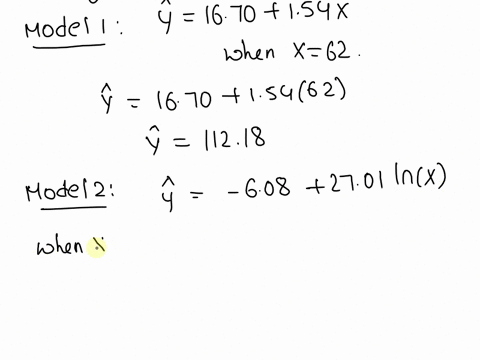 Model 1: ŷ = 16.70 + 1.54x
when x=62.
ŷ = 16.70 + 1.54(62)
ŷ = 112.18
Model 2: ŷ = -6.08 + 27.01 ln(x)
when x